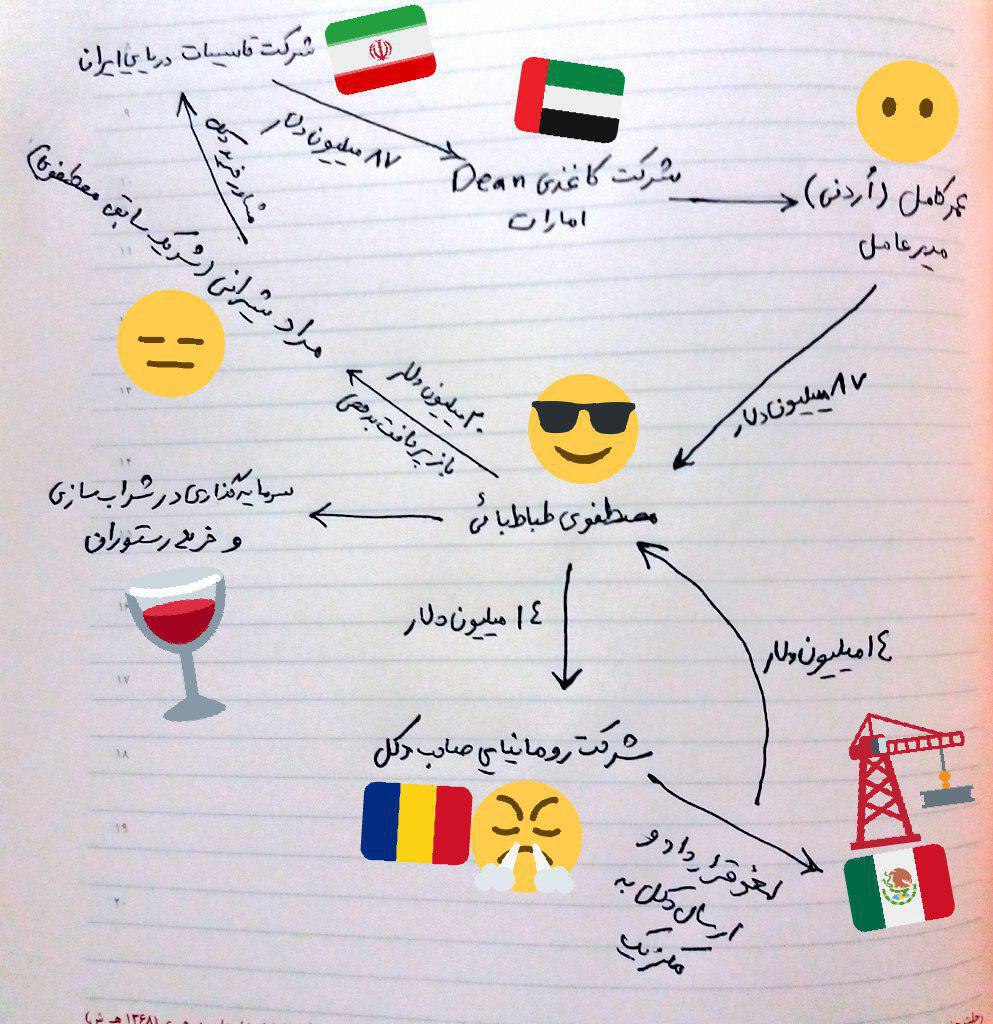 شرکت تاسیسات دریایی ایران
۸۷ میلیون دلار
شرکت کاغذی Dean
امارات
عمر کامل (اُردنی)
مدیر عامل
۸۷ میلیون دلار
مشاور خرید دکل
مراد شیرانی (شریک سابق مصطفوی)
۲۰ میلیون دلار
باز پرداخت بدهی
مصطفوی طباطبائی
سرمایه گذاری در شراب سازی
و خرید رستوران
۱٤ میلیون دلار
۱٤ میلیون دلار
شرکت رومانیایی صاحب دکل
لغو قرارداد و
ارسال دکل به
مکزیک
۹
۱۱
۱۳
۱۴
۱۷
۱۸
۱۹
۲۰
(۱۳۶۸ هـ ش)